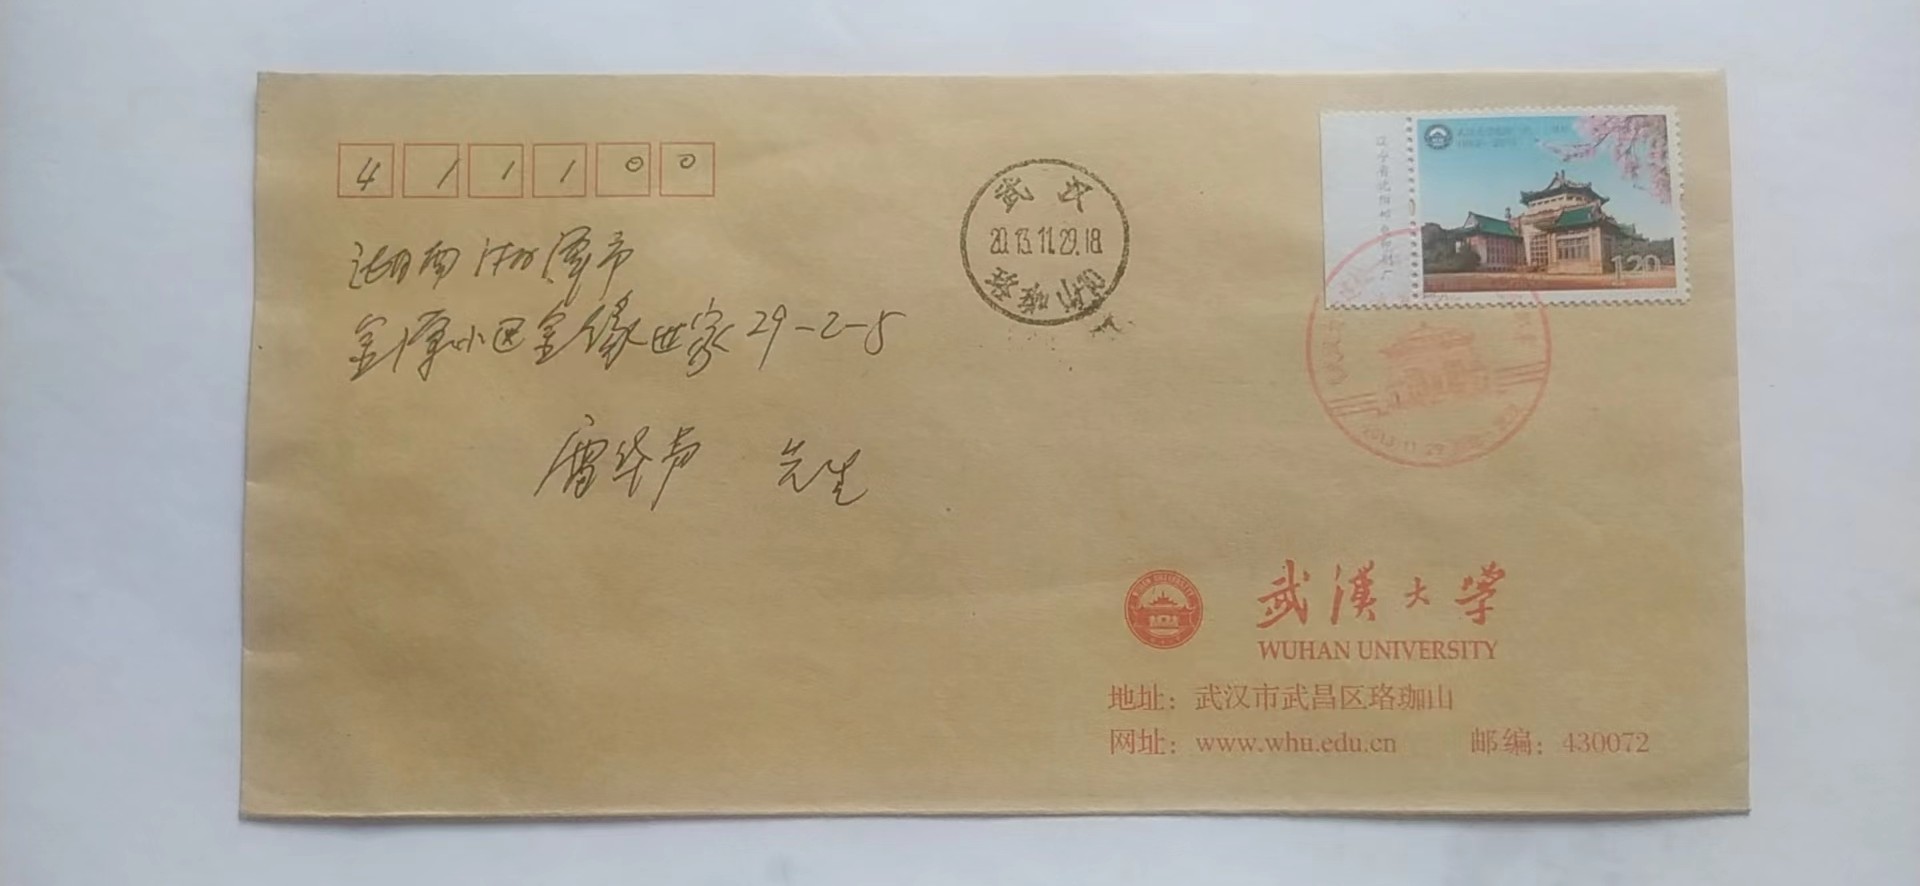 411100
湖南湘潭市
金潭小区金缘世家29-2-5
雷华声 先生
武汉
2013.11.29.18
1.20
2013.11.29
武漢大学
WUHAN UNIVERSITY
地址：武汉市武昌区珞珈山
网址：www.whu.edu.cn 邮编：430072